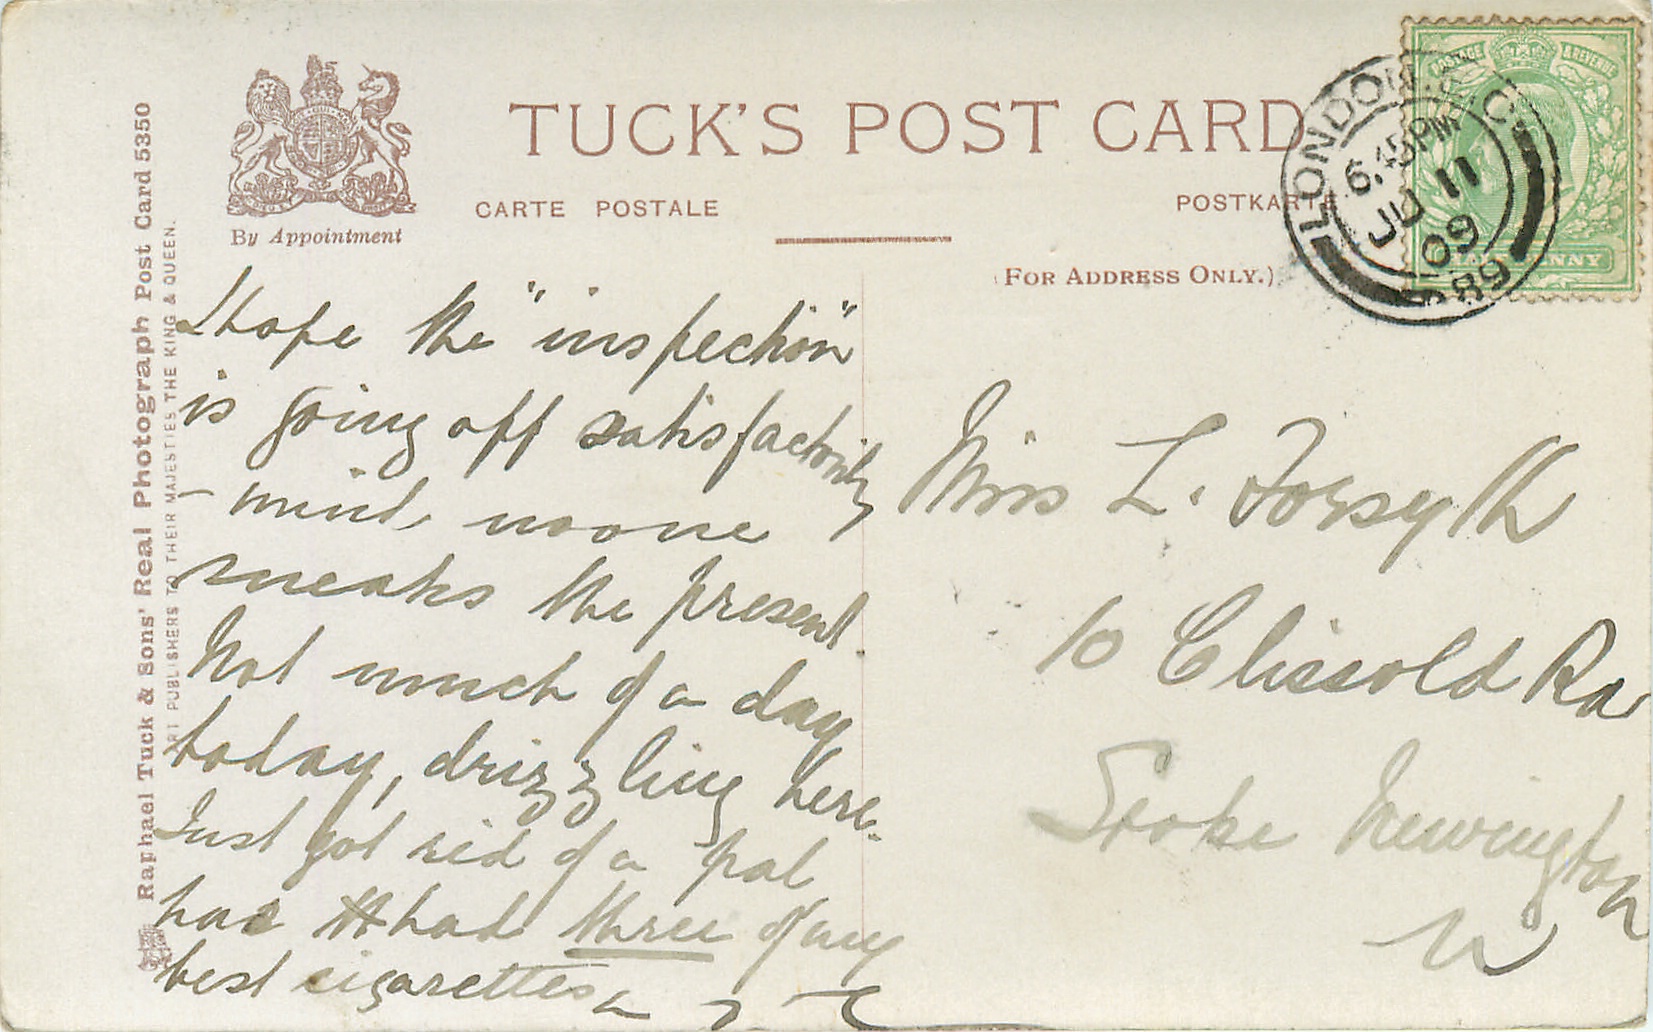 TUCK'S POST CARD
CARTE POSTALE
POSTKARTE
By Appointment
(FOR ADDRESS ONLY.)
Raphael Tuck & Sons' Real Photograph Post Card 5350
ART PUBLISHERS TO THEIR MAJESTIES THE KING & QUEEN.
POSTAGE & REVENUE
LONDON
6.45PM
JU 11
09
89
I hope the "inspection"
is going off satisfactorily
- mind, noone
sneaks the present
Not much of a day
today, drizzling here.
Just got rid of a pal
has had three of my
best cigarettes
Miss L. Forsyth
10 Clissold Rd
Stoke Newington
N